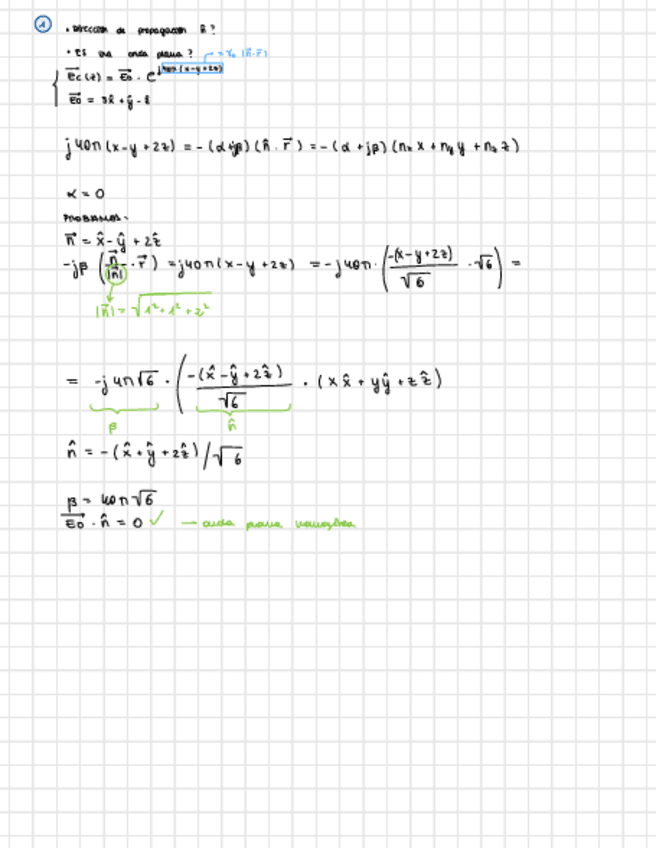 1
• Dirección de propagación n̂?
• Es una onda plana? → = γ₀ (n̂·r⃗)
E⃗c(z) = E⃗o · e^j40π(x-y+2z)
E⃗o = 3x̂ + ŷ - ẑ
j40π(x-y+2z) = -(α+jβ)(n̂·r⃗) = -(α+jβ)(nₓx + n_y y + n_z z)
α = 0
PROBAMOS:
n⃗ = x̂ - ŷ + 2ẑ
-jβ (n⃗/|n⃗| · r⃗) = j40π(x-y+2z) = -j40π · (-(x-y+2z)/√6 · √6) =
|n⃗| = √1²+1²+2²
= -j4π√6 · (-(x̂-ŷ+2ẑ)/√6 · (xx̂ + yŷ + zẑ)
β n̂
n̂ = -(x̂+ŷ+2ẑ)/√6
β = 40π√6
E⃗o · n̂ = 0 ✓ → onda plana